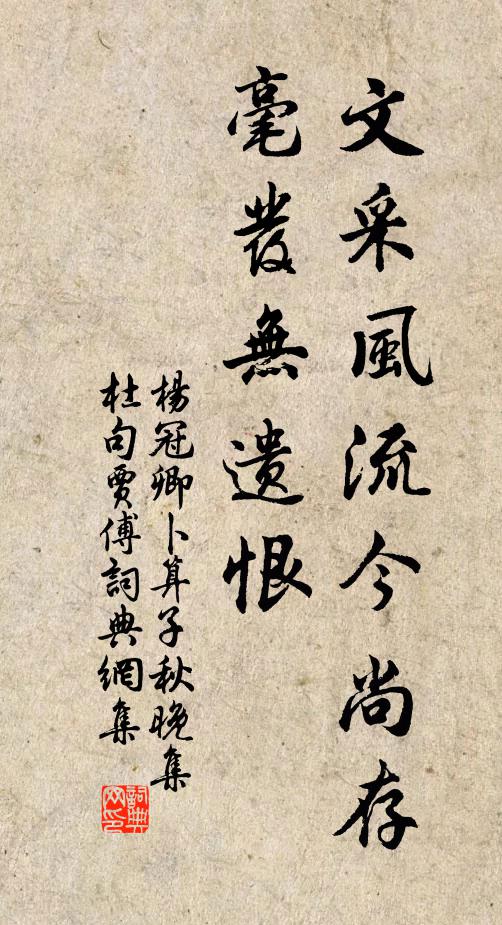 文采風流今尚存
毫發無遺恨
楊冠卿卜算子秋晚集
杜句賈傅詞典網集
詞典網印